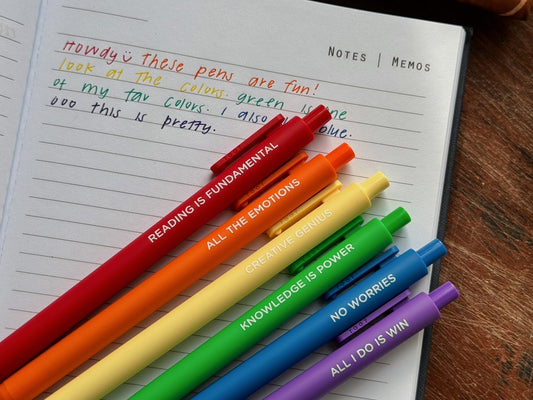 Notes | Memos
Howdy these pens are fun!
look at the colors. green is one
of my fav colors. I also blue.
ooo this is pretty.
READING IS FUNDAMENTAL
ALL THE EMOTIONS
CREATIVE GENIUS
KNOWLEDGE IS POWER
NO WORRIES
ALL I DO IS WIN